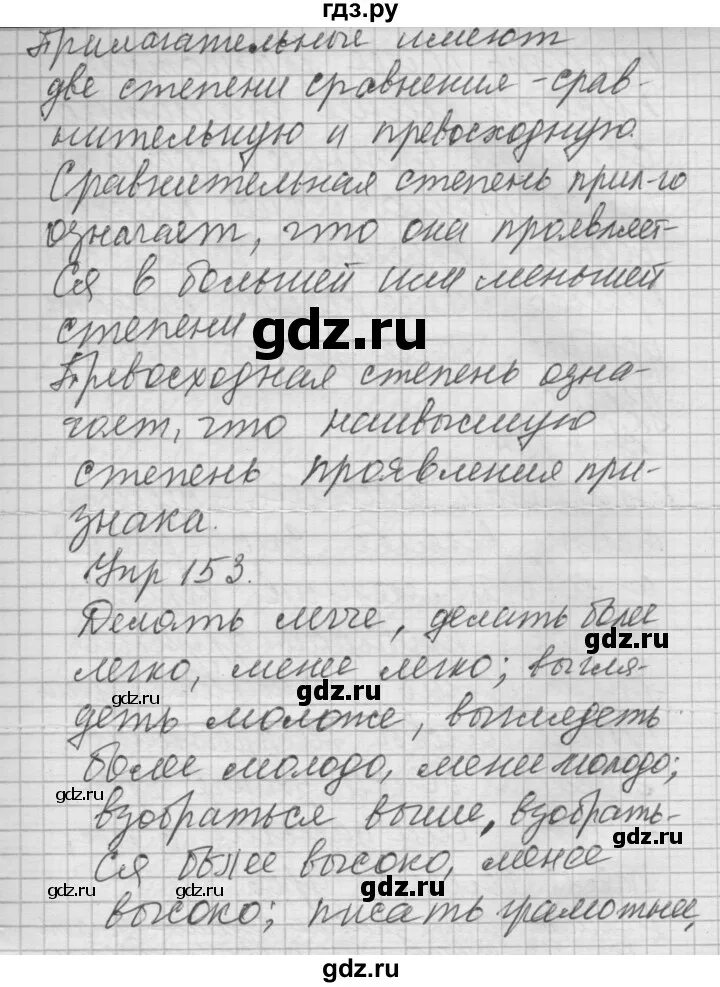 гдз.ру
Прилагательные имеют
две степени сравнения - срав-
нительную и превосходную.
Сравнительная степень прил-го
означает, что она проявляет-
ся в большей или меньшей
степени
gdz.ru
Превосходная степень озна-
чает, что наивысшую
степень проявления при-
знака.
Упр 153.
Делать легче, делать более
gdz.ru
легко, менее легко; выгля-
gdz.ru gdz.ru
деть моложе, выглядеть
более молодо, мене молодо;
gdz.ru
взобраться выше, взобрать-
gdz.ru
ся более высоко, менее
gdz.ru gdz.ru gdz.ru
высоко; писать грамотнее,
gdz.ru